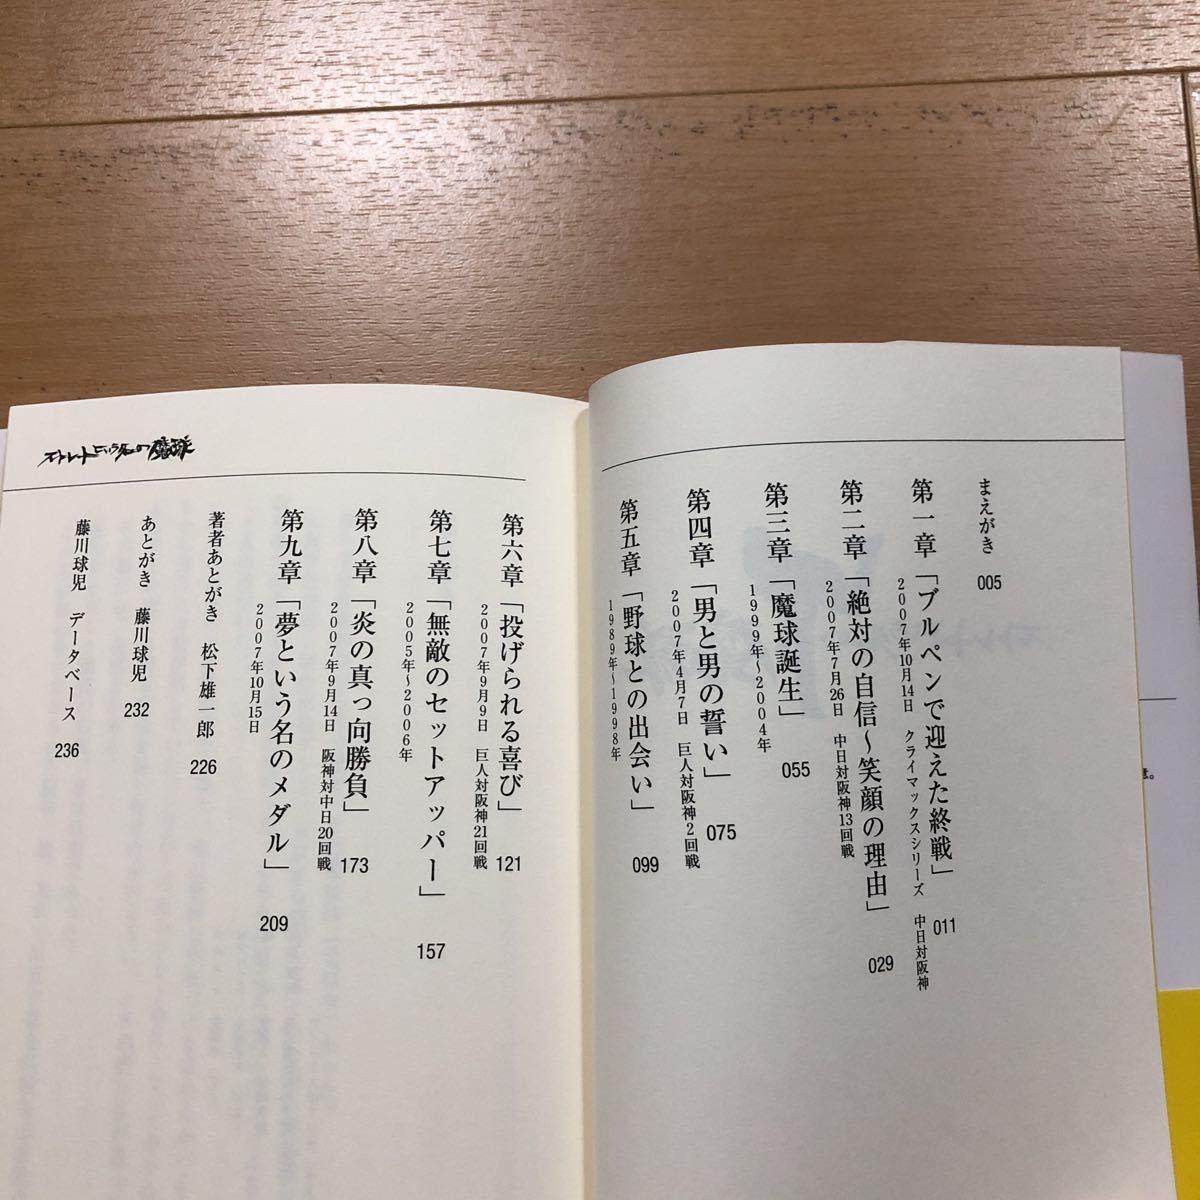 まえがき 005
第一章「ブルペンで迎えた終戦」 011
2007年10月14日 クライマックスシリーズ 中日対阪神
第二章「絶対の自信～笑顔の理由」 029
2007年7月26日 中日対阪神13回戦
第三章「魔球誕生」 055
1999年～2004年
第四章「男と男の誓い」 075
2007年4月7日 巨人対阪神2回戦
第五章「野球との出会い」 099
1989年～1998年
ストレートという名の魔球
第六章「投げられる喜び」 121
2007年9月9日 巨人対阪神21回戦
第七章「無敵のセットアッパー」 157
2005年～2006年
第八章「炎の真っ向勝負」 173
2007年9月14日 阪神対中日20回戦
第九章「夢という名のメダル」 209
2007年10月15日
著者あとがき 松下雄一郎 226
あとがき 藤川球児 232
藤川球児 データベース 236